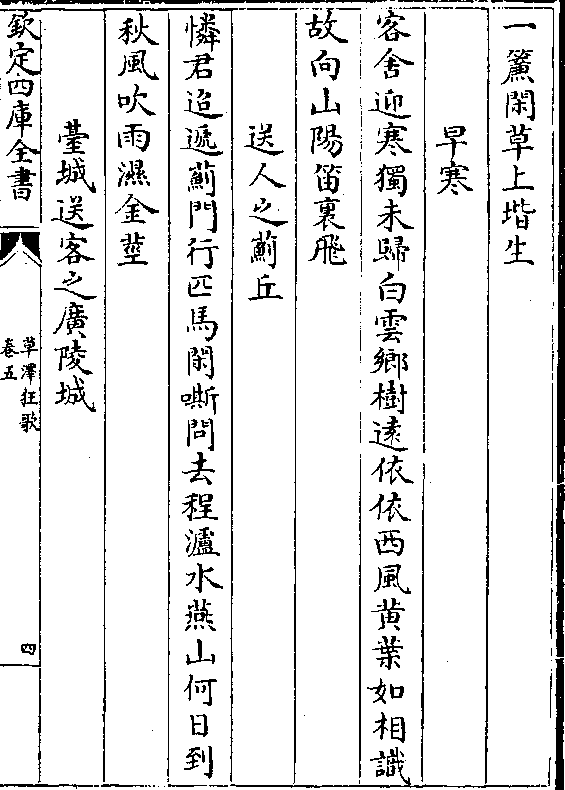 一簾閑草上堦生
早寒
客舍迎寒獨未歸白雲鄉樹逺依依西風黄葉如相識
故向山陽笛裏飛
送人之薊丘
憐君迢遞薊門行匹馬閑嘶問去程瀘水燕山何日到
秋風吹雨濕金臺
臺城送客之廣陵城
欽定四庫全書
草澤狂歌
卷五
四